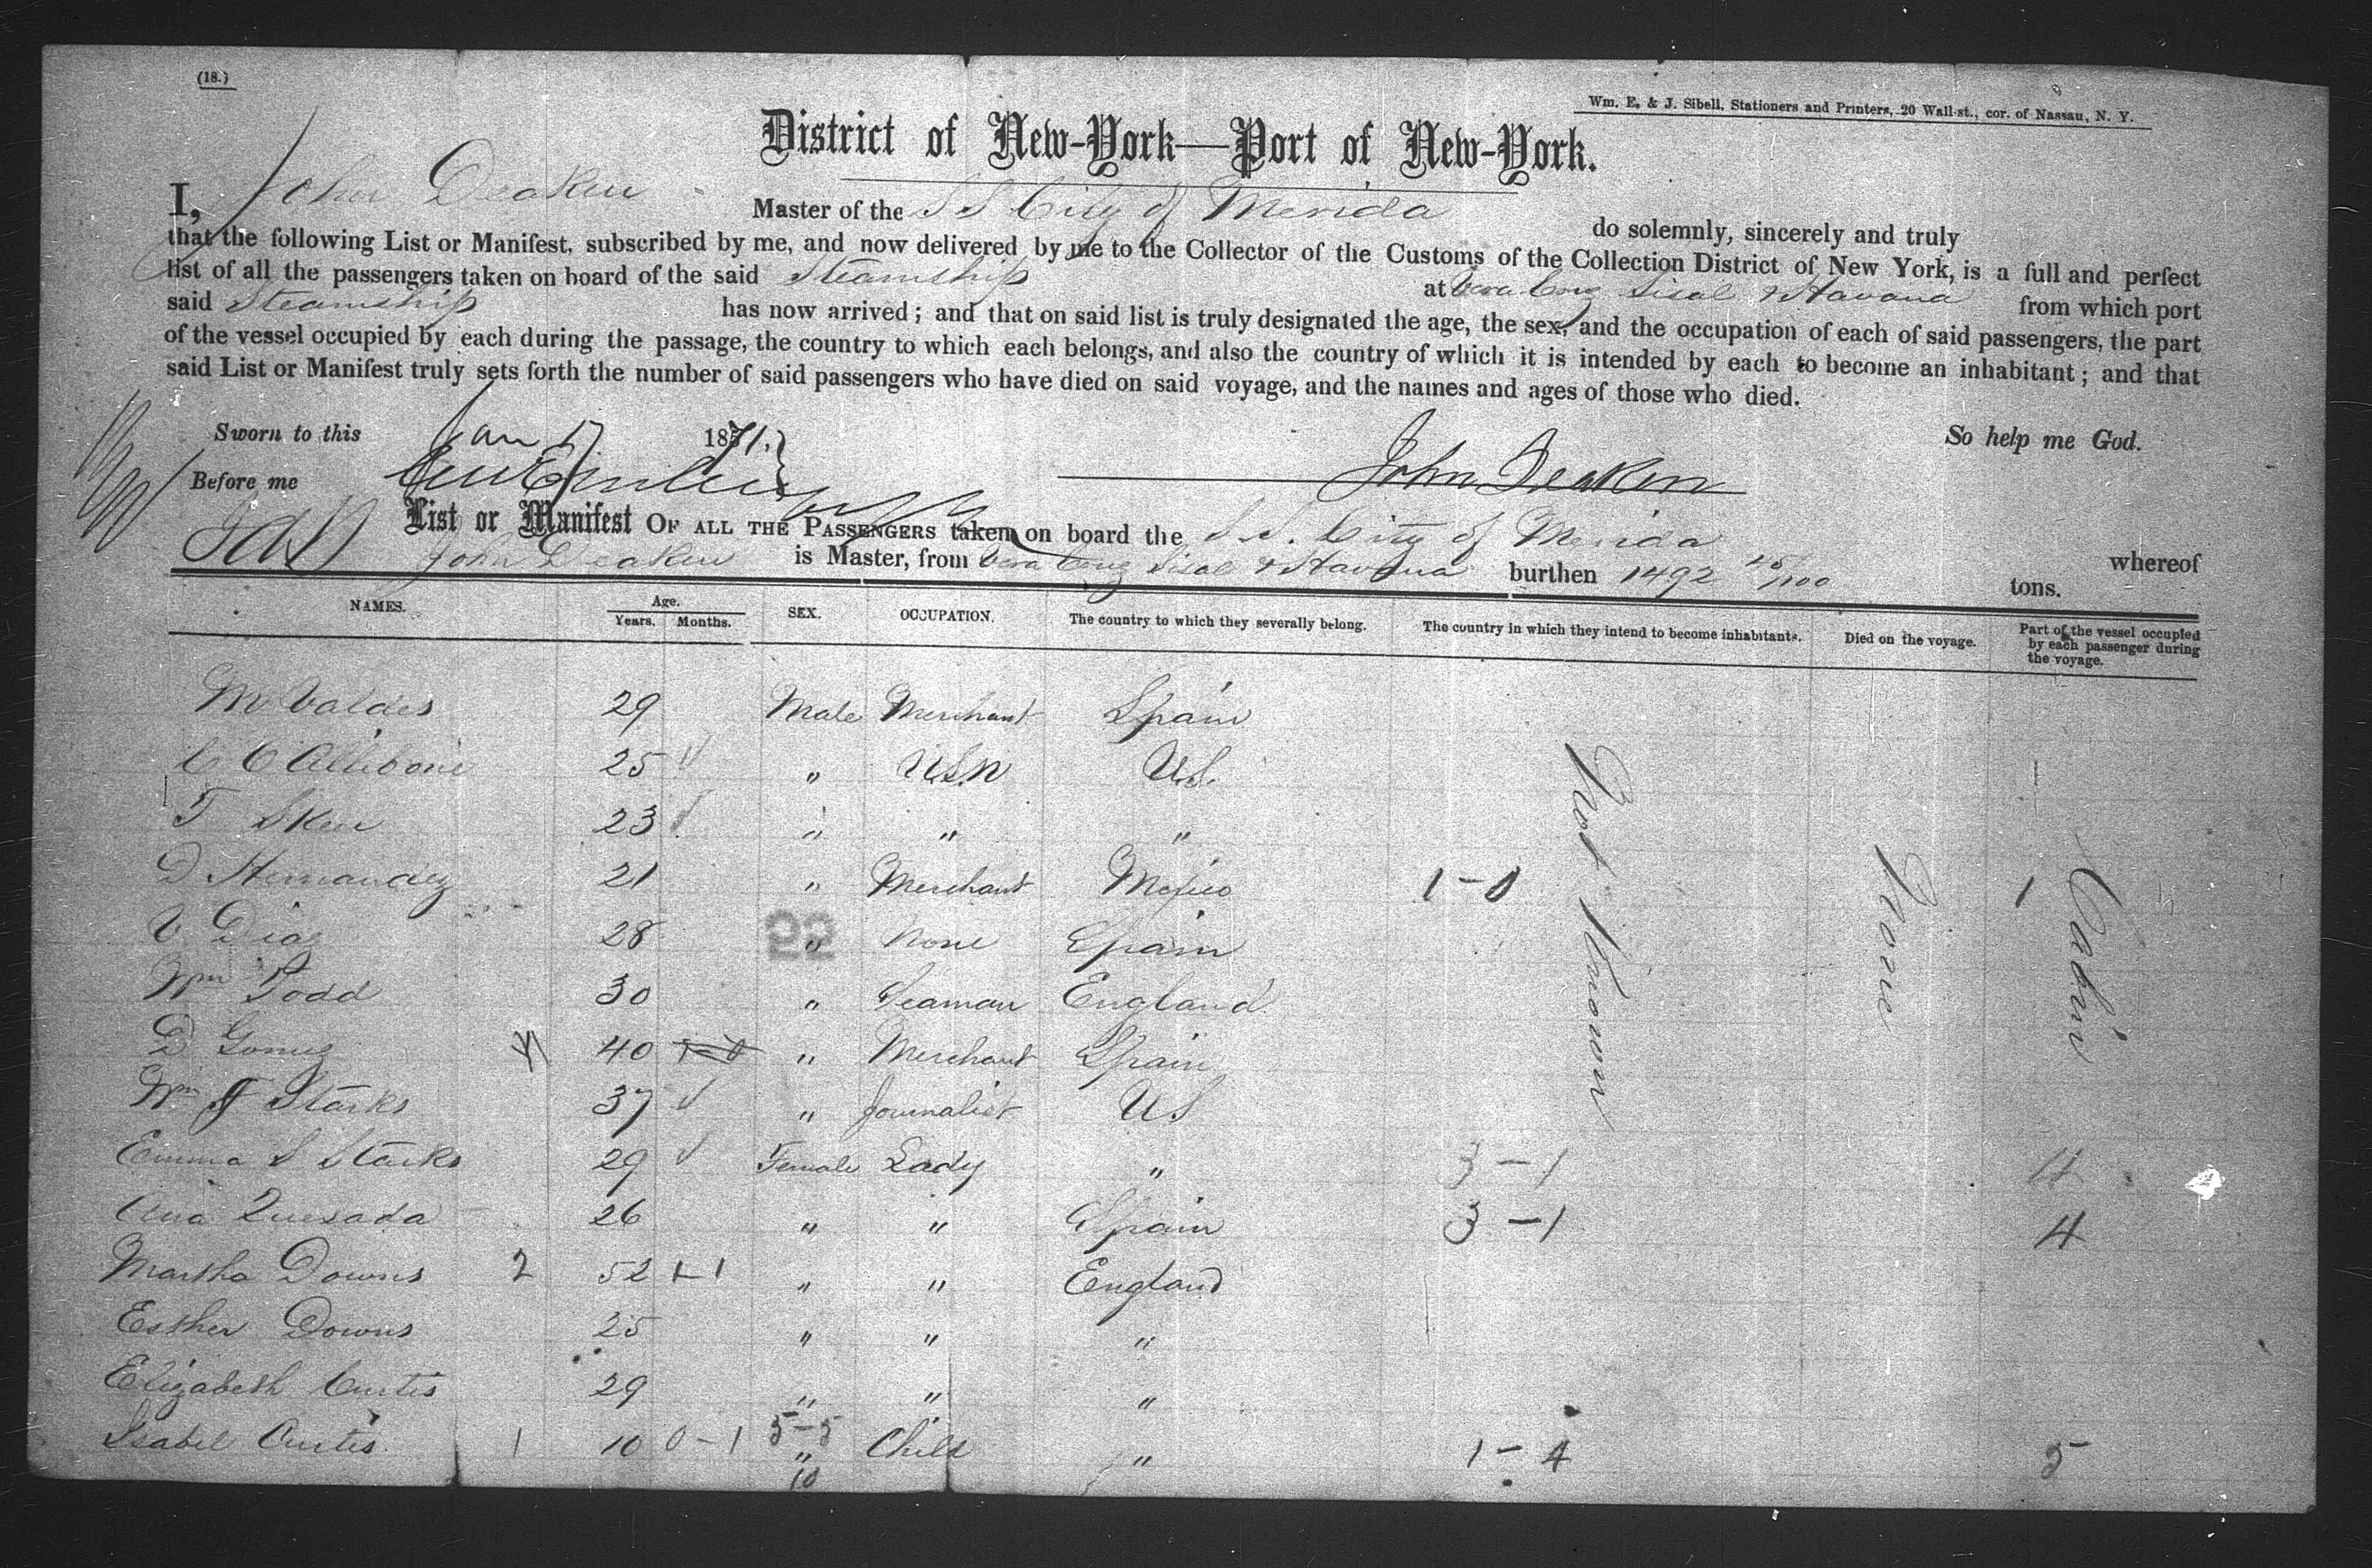 (18.)
Wm. E. & J. Sibell, Stationers and Printers, 20 Wall-st., cor. of Nassau, N. Y.
District of New-York—Port of New-York.
I, John Deaken Master of the SS City of Merida do solemnly, sincerely and truly
that the following List or Manifest, subscribed by me, and now delivered by me to the Collector of the Customs of the Collection District of New York, is a full and perfect
list of all the passengers taken on board of the said Steamship at Vera Cruz Sisal & Havana from which port
said Steamship has now arrived; and that on said list is truly designated the age, the sex, and the occupation of each of said passengers, the part
of the vessel occupied by each during the passage, the country to which each belongs, and also the country of which it is intended by each to become an inhabitant; and that
said List or Manifest truly sets forth the number of said passengers who have died on said voyage, and the names and ages of those who died.
Sworn to this Jan 17 1871. So help me God.
Before me John Deaken
List or Manifest OF ALL THE PASSENGERS taken on board the S.S. City of Merida whereof
John Deaken is Master, from Vera Cruz Sisal & Havana burthen 1492 45/100 tons.
NAMES. Age. Years. Months. SEX. OCCUPATION. The country to which they severally belong. The country in which they intend to become inhabitants. Died on the voyage. Part of the vessel occupied by each passenger during the voyage.
M Valdes 29 Male Merchant Spain
C C Allibone 25 " USN U.S.
T Sken 23 " " "
D Hernandez 21 " Merchant Mexico 1-0 1
V. Diaz 28 " None Spain
Wm Todd 30 " Seaman England
D Gomez 40 " Merchant Spain
Wm J Starks 37 " Journalist US
Emma S Starks 29 Female Lady " 3-1 4
Ana Quesada 26 " " Spain 3-1 4
Martha Downs 2 52 1-1 " " England
Esther Downs 25 " " "
Elizabeth Curtis 29 " " "
Isabel Curtis 1 10 0-1 5-5 " Child " 1-4 5
10
Not Known
None
Cabin